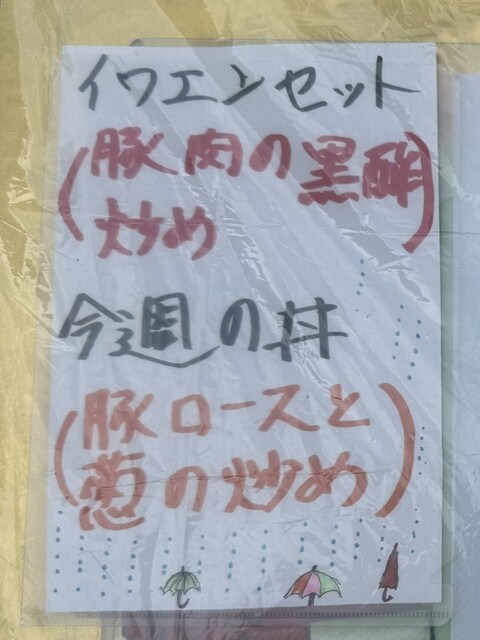 イワエンセット
(豚肉の黒酢
炒め)
今週の丼
(豚ロースと
葱の炒め)